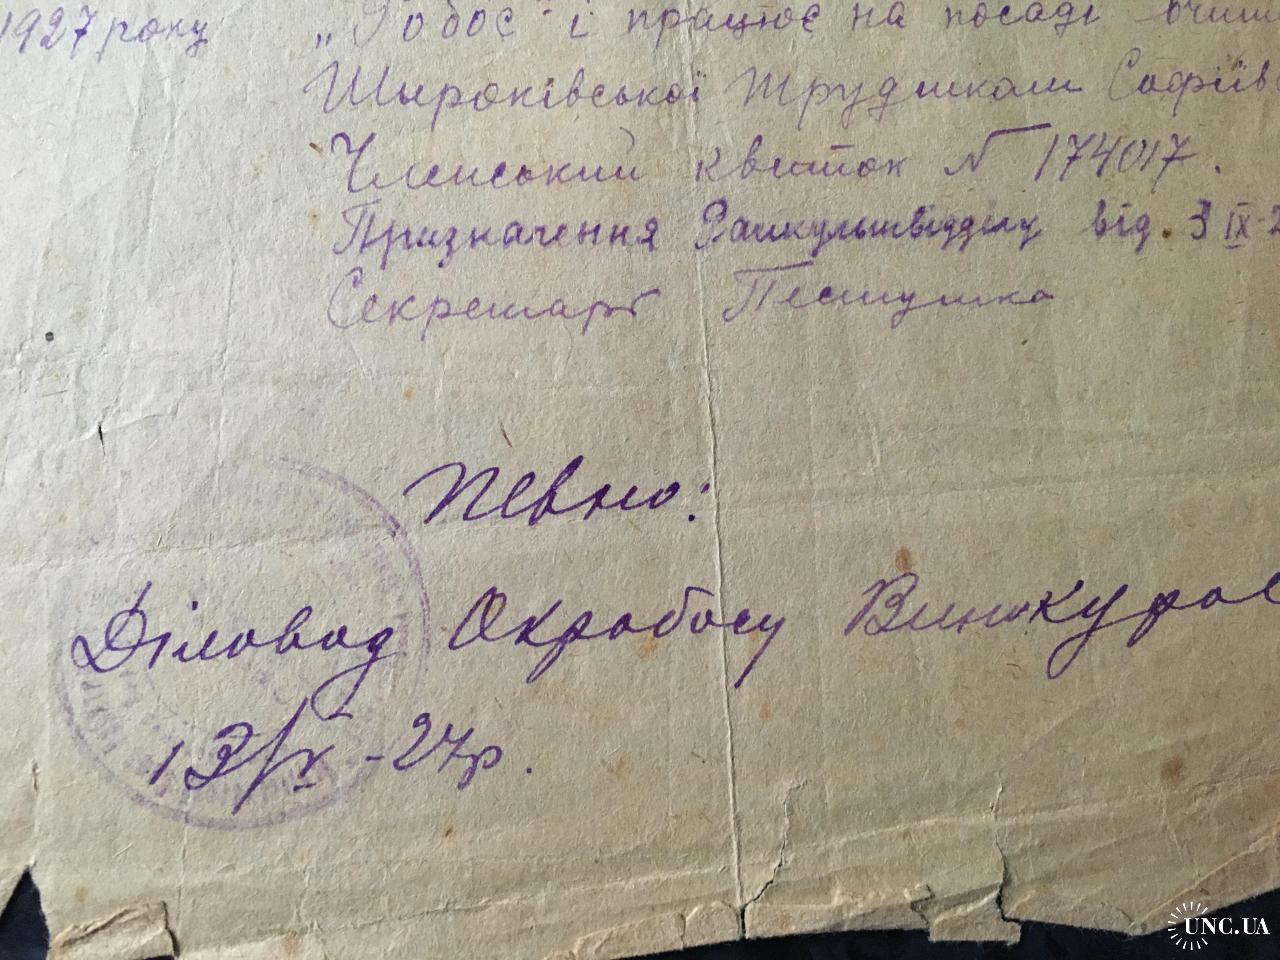 1927 року „Робос" і працює на посаді
Шыроківської Трудшколи Софіїв
Членський квиток N 174017.
Призначення Райкультвідділу від. 3 IX-2
Секретарь Пестушка
Певно:
Діловод Окрробосу Винокуров
13/IX-27р.
UNC.UA